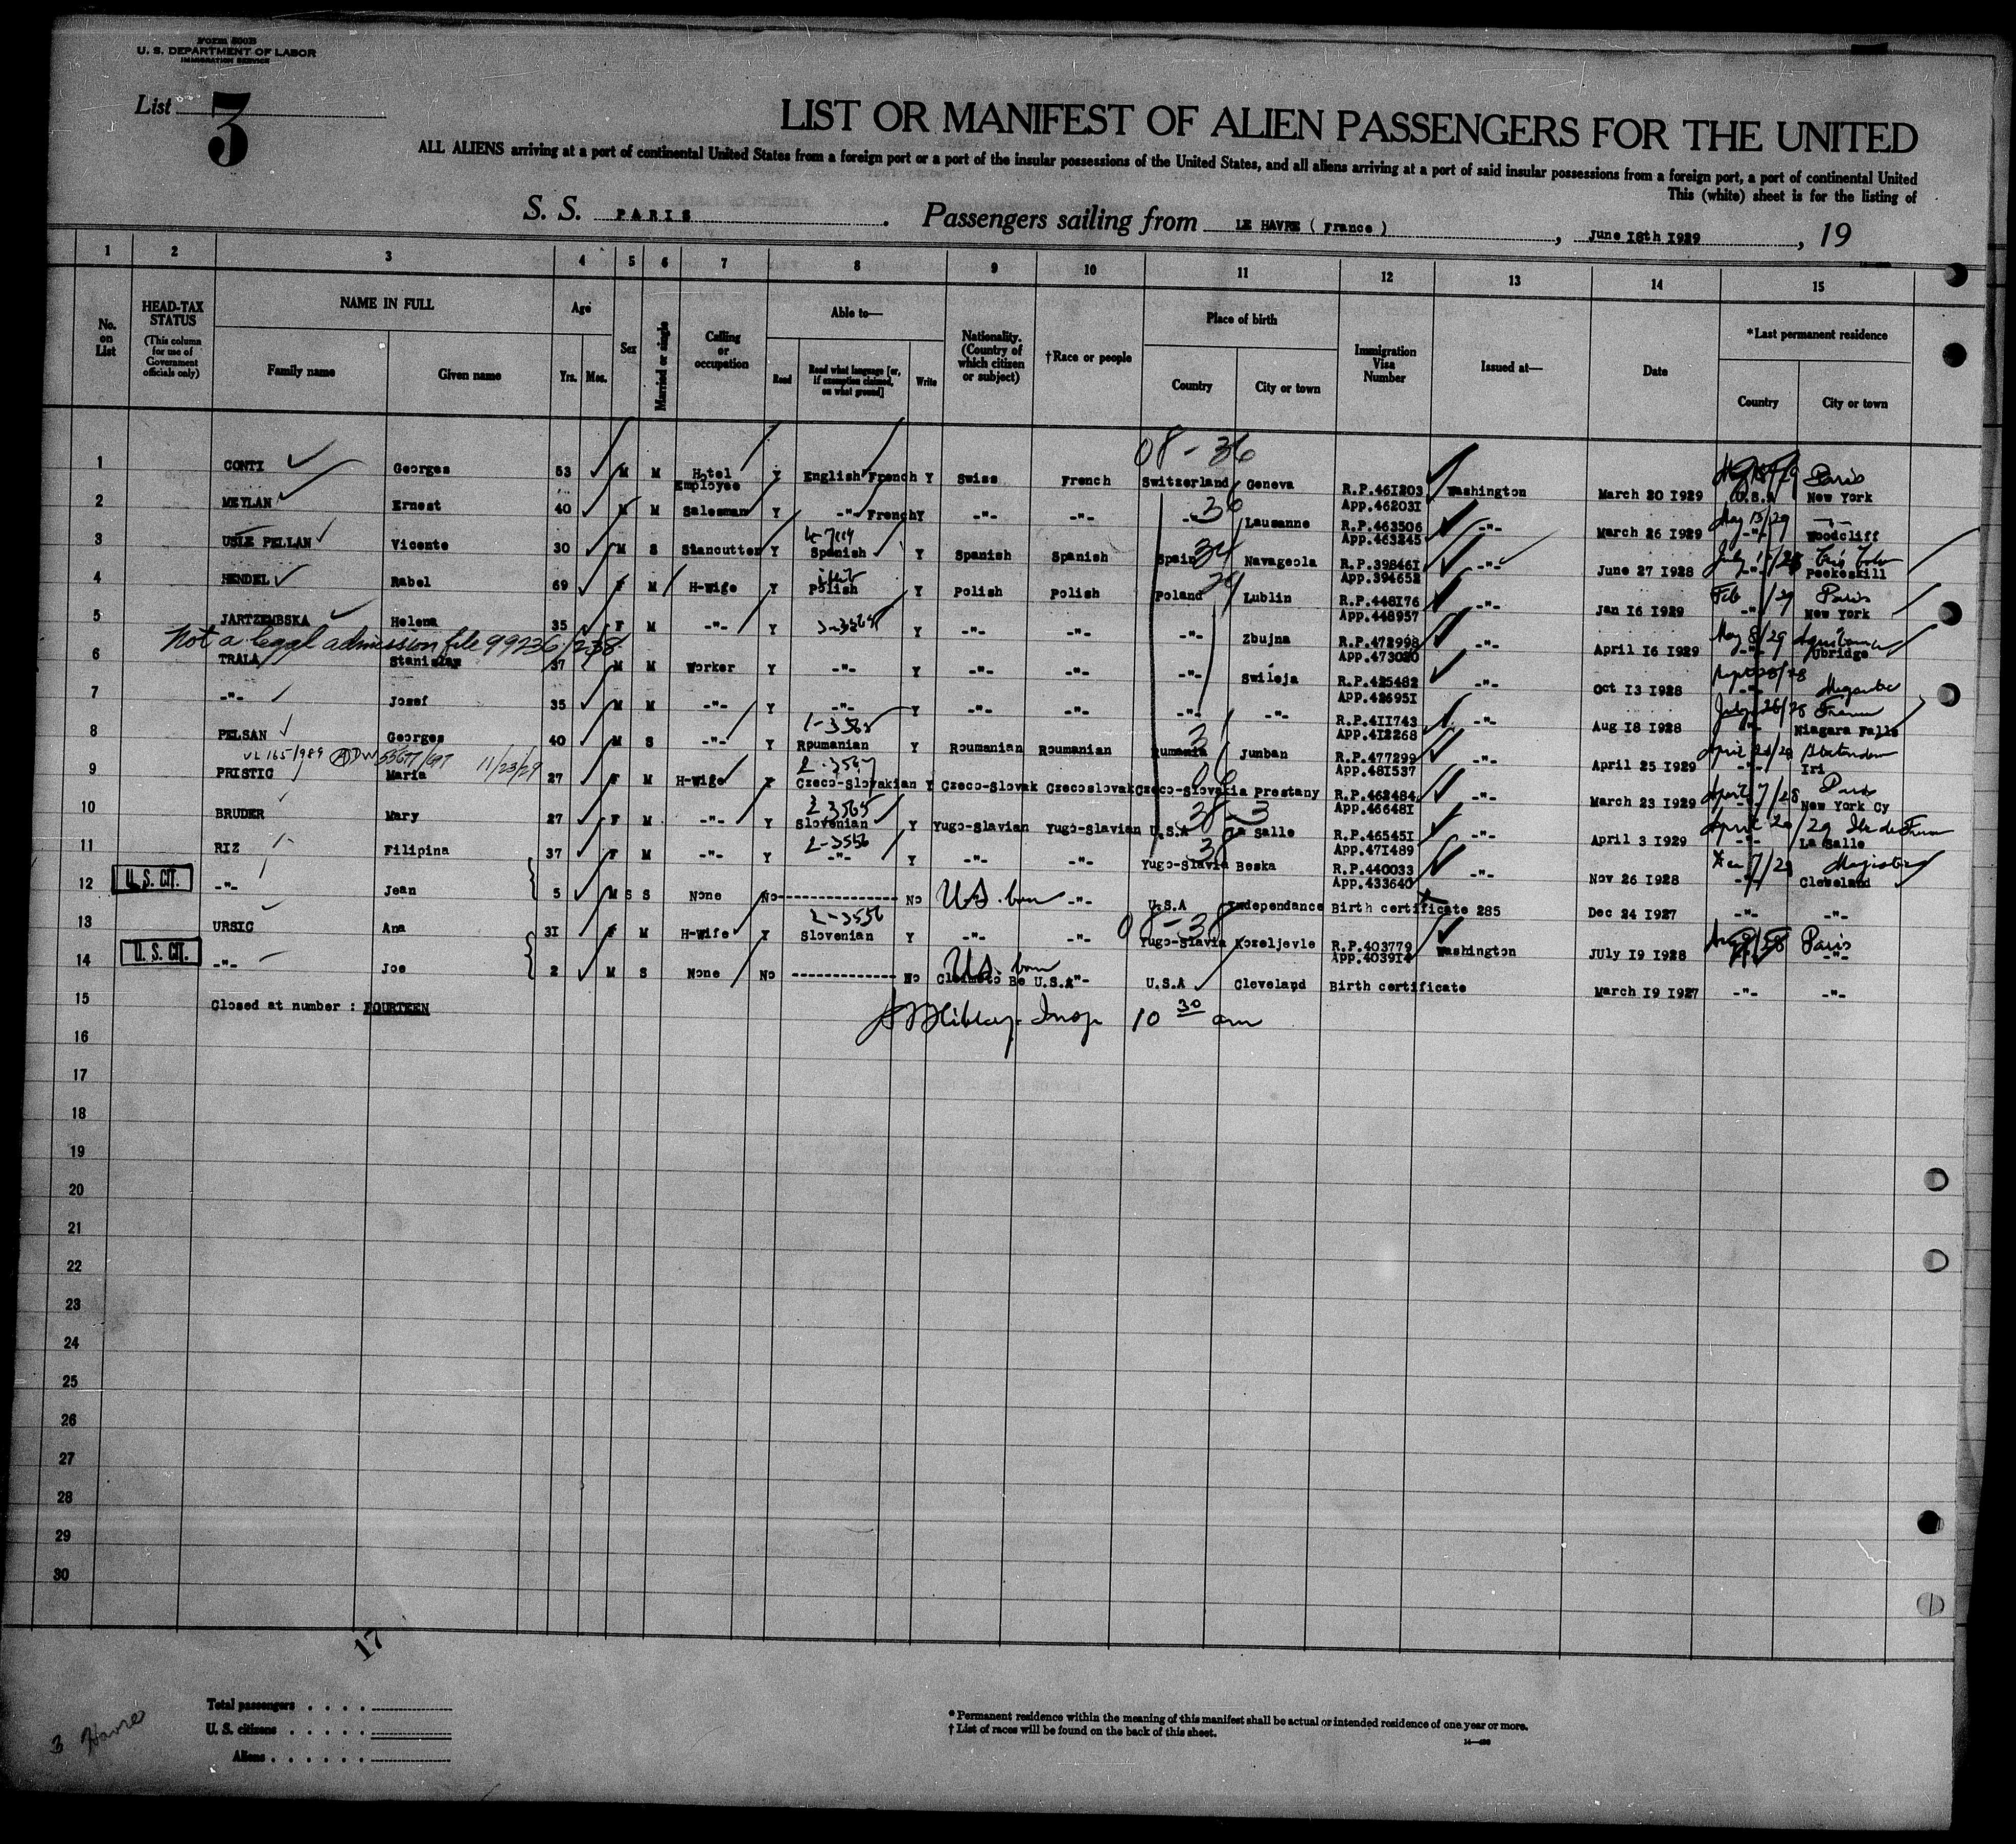 Form 500B
U. S. DEPARTMENT OF LABOR
IMMIGRATION SERVICE
List 3
LIST OR MANIFEST OF ALIEN PASSENGERS FOR THE UNITED
ALL ALIENS arriving at a port of continental United States from a foreign port or a port of the insular possessions of the United States, and all aliens arriving at a port of said insular possessions from a foreign port, a port of continental United
This (white) sheet is for the listing of
S. S. PARIS. Passengers sailing from LE HAVRE ( France ), June 18th 1929, 19
1 2 3 4 5 6 7 8 9 10 11 12 13 14 15
No. on List
HEAD-TAX STATUS (This column for use of Government officials only)
NAME IN FULL
Family name Given name
Age
Yrs. Mos.
Sex
Married or single
Calling or occupation
Able to—
Read Read what language [or, if exemption claimed, on what ground] Write
Nationality. (Country of which citizen or subject)
†Race or people
Place of birth
Country City or town
Immigration Visa Number
Issued at—
Date
*Last permanent residence
Country City or town
08-36
1 CONTI Georges 53 M M Hotel Employee Y English French Y Swiss French Switzerland Geneva R.P.461203 App.462031 Washington March 20 1929 U.S.A New York
Paris
2 MEYLAN Ernest 40 M M Salesman Y -"- French Y -"- -"- -"- Lausanne R.P.463506 App.463245 -"- March 26 1929 -"- Woodcliff
May 15/29
3 USLE PELLAN Vicente 30 M S Stancutter Y Spanish Y Spanish Spanish Spain Navageola R.P.398461 App.394652 -"- June 27 1928 -"- Peekeskill
4 HENDEL Rabel 69 F M H-wife Y Polish Y Polish Polish Poland Lublin R.P.448176 App.448957 -"- Jan 16 1929 -"- New York
Feb /29 Paris
5 JARTZEMBSKA Helena 35 F M -"- Y -"- -"- -"- Zbujna R.P.472998 App.473020 -"- April 16 1929 -"- Ubridge
May 8/29
Not a legal admission file 99236/238
6 TRALA Stanislaw 37 M M Worker Y -"- Y -"- -"- -"- Swileja R.P.425482 App.426951 -"- Oct 13 1928 -"-
7 -"- Josef 35 M M -"- Y -"- Y -"- -"- -"- -"- R.P.411743 App.412268 -"- Aug 18 1928 -"- Niagara Falls
8 PELSAN Georges 40 M S -"- Y Roumanian Y Roumanian Roumanian Rumania Junban R.P.477299 App.481537 -"- April 25 1929 -"- Iri
VL 165/989 11/23/29
9 PRISTIC Maria 27 F M H-wife Y Czeco-Slovakian Y Czeco-Slovak Czecoslovak Czeco-Slovakia Prestany R.P.462484 App.466481 -"- March 23 1929 New York Cy
April 7/28 Paris
2-3565
10 BRUDER Mary 27 F M -"- Y Slovenian Y Yugo-Slavian Yugo-Slavian U.S.A La Salle R.P.465451 App.471489 -"- April 3 1929 -"- La Salle
April 20/29 Ile de France
2-3556
11 RIZ Filipina 37 F M -"- Y -"- Y -"- -"- Yugo-Slavia Beska R.P.440033 App.433640 -"- Nov 26 1928 -"- Cleveland
Majestic
12 U. S. CIT. -"- Jean 5 M S S None No No U.S. born -"- U.S.A Independance Birth certificate 285 Dec 24 1927 -"- -"-
2-3556
08-38
13 URSIC Ana 31 F M H-wife Y Slovenian Y -"- -"- Yugo-Slavia Kozeljevle R.P.403779 App.403914 Washington July 19 1928 Paris -"-
14 U. S. CIT. -"- Joe 2 M S None No No U.S. born Claims to Be U.S.A -"- U.S.A Cleveland Birth certificate March 19 1927 -"- -"-
15 Closed at number : FOURTEEN
Insp 10 30 am
16
17
18
19
20
21
22
23
24
25
26
27
28
29
30
17
3 Havre
Total passengers
U. S. citizens
Aliens
* Permanent residence within the meaning of this manifest shall be actual or intended residence of one year or more.
† List of races will be found on the back of this sheet.